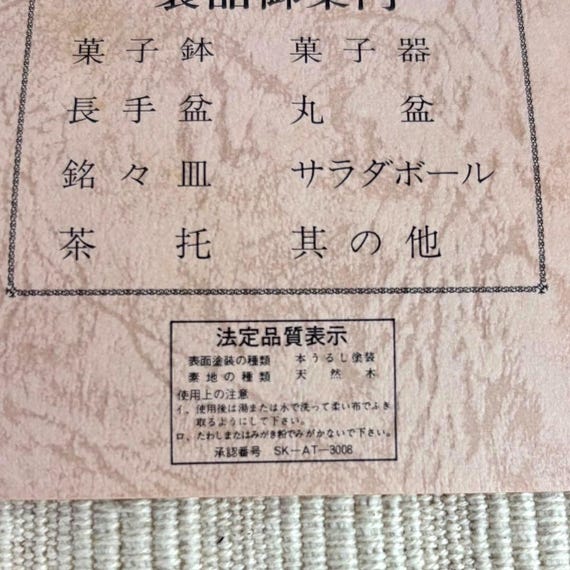 製品御案内
菓子鉢　菓子器
長手盆　丸盆
銘々皿　サラダボール
茶托　其の他
法定品質表示
表面塗装の種類　本うるし塗装
素地の種類　天然木
使用上の注意
イ、使用後は湯または水で洗って柔い布でふき
取るようにして下さい。
ロ、たわしまたはみがき粉でみがかないで下さい。
承認番号　SK－AT－3008